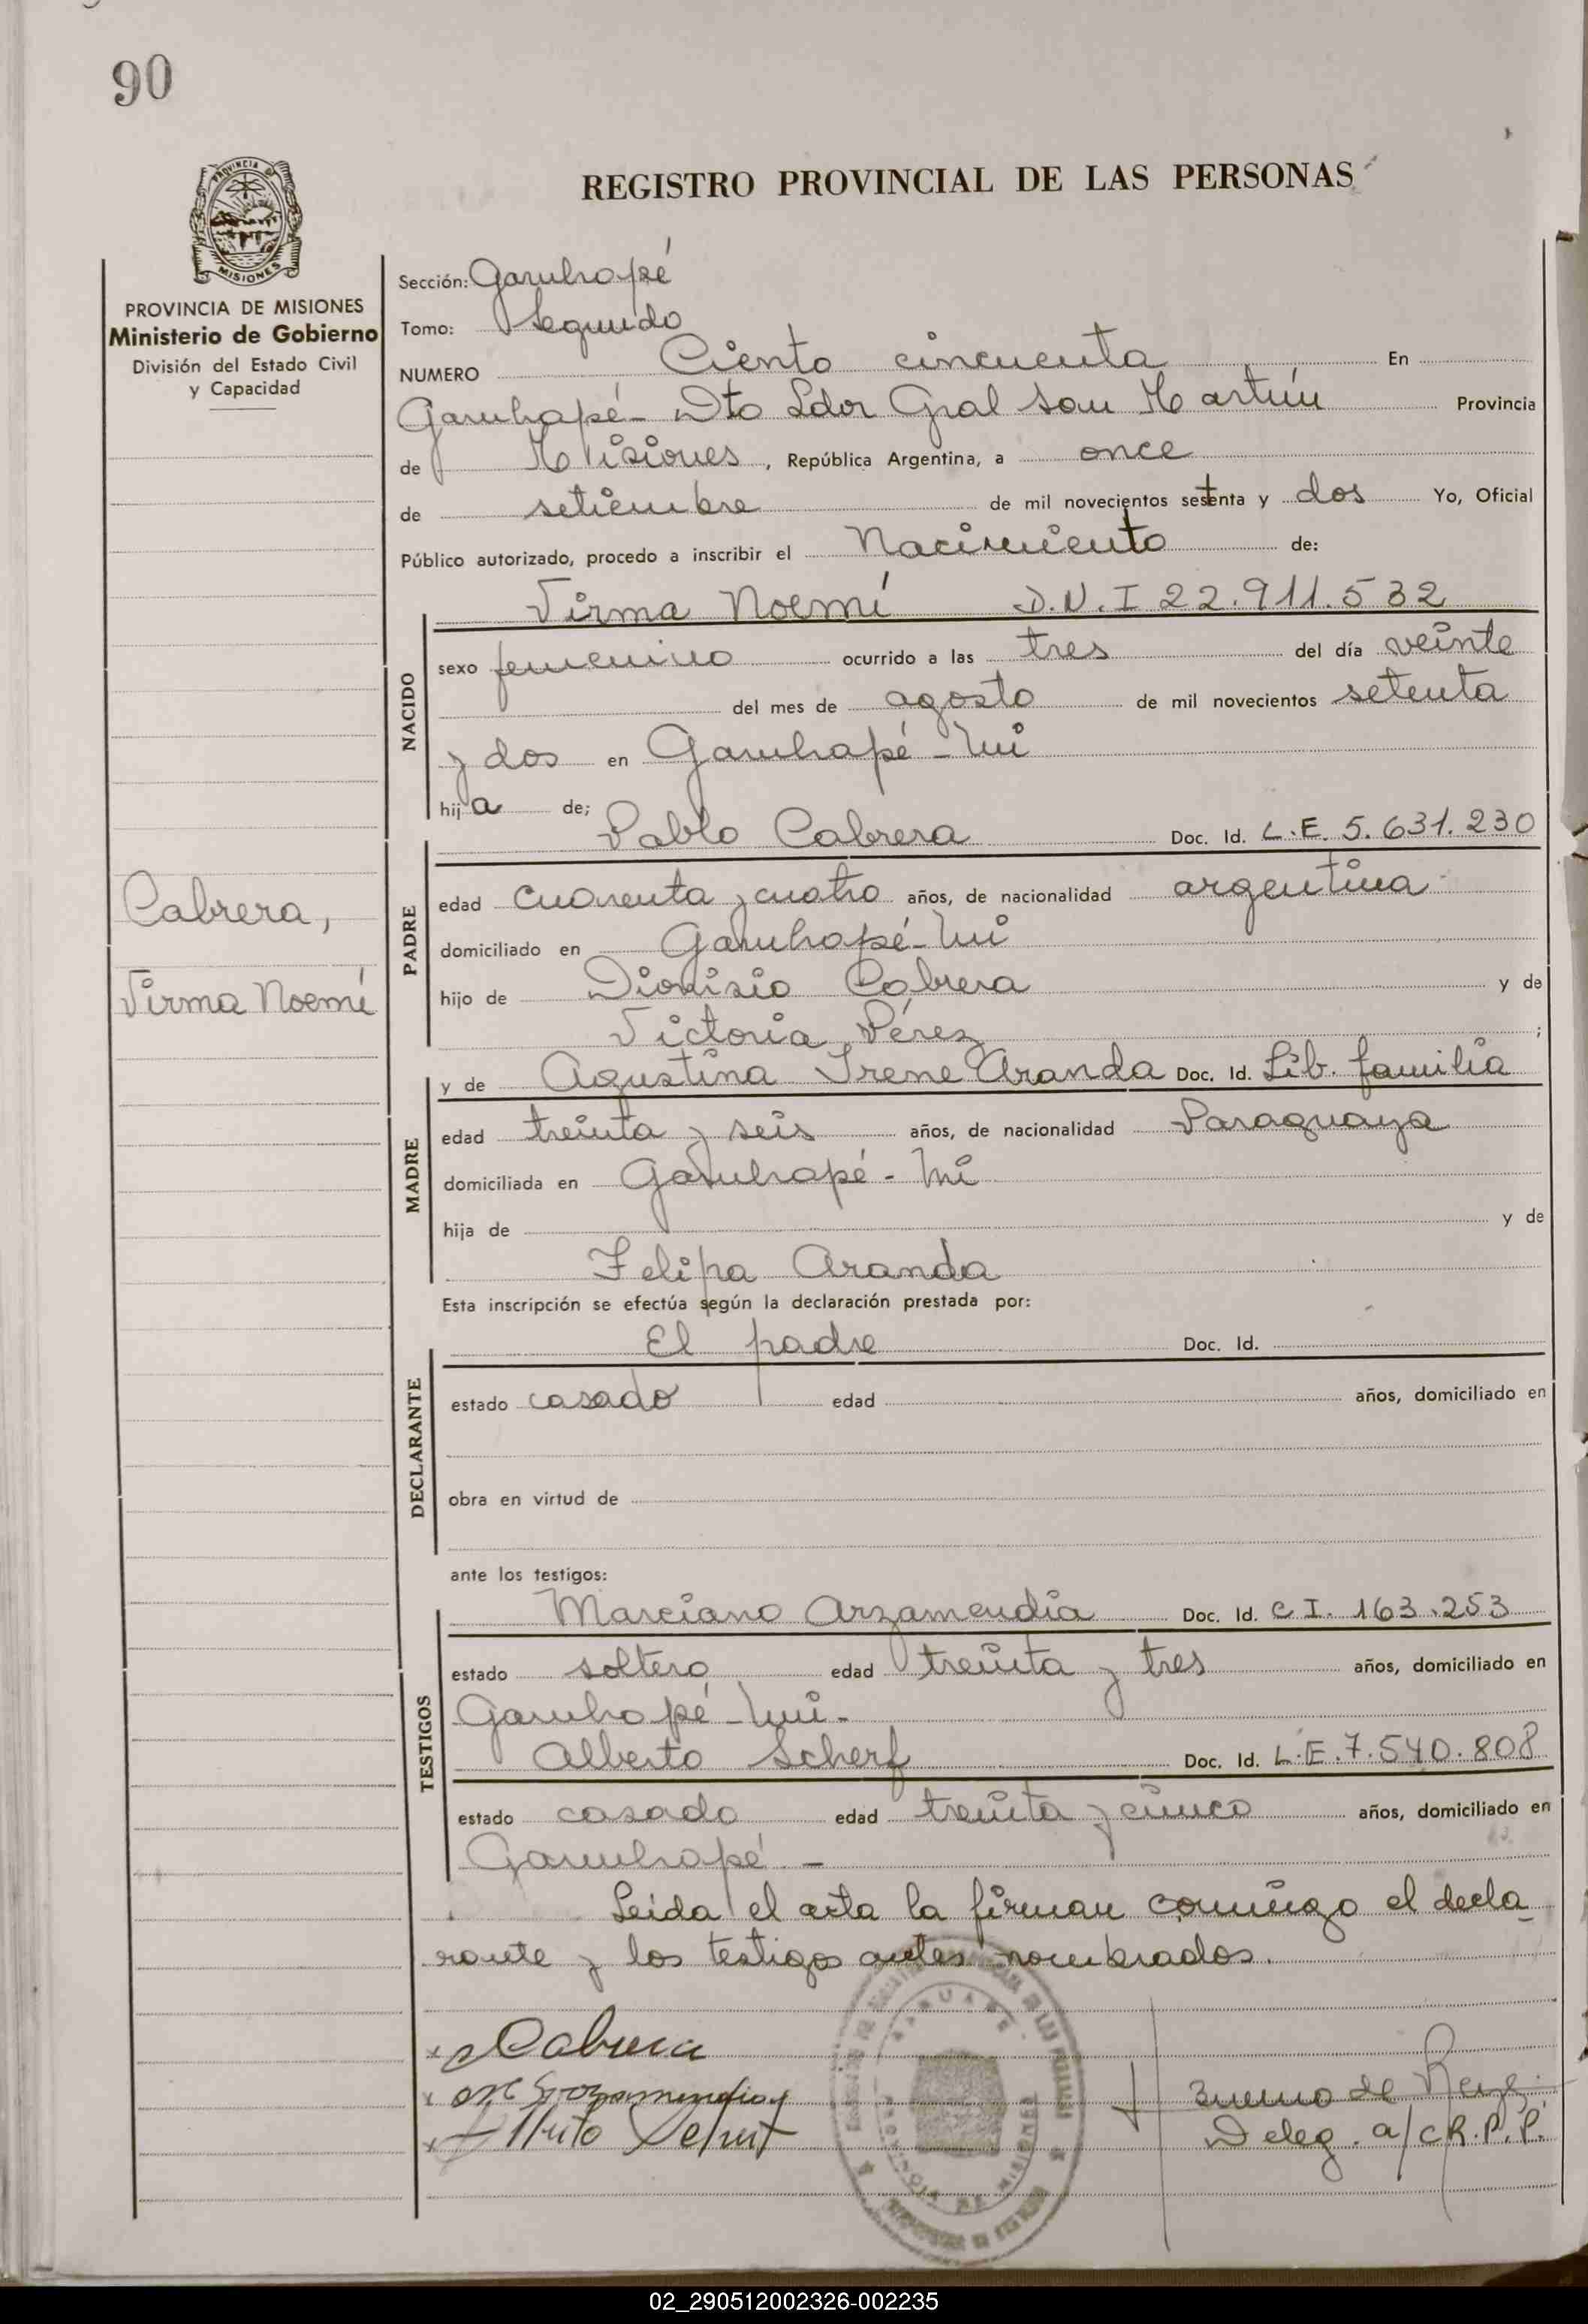 90
REGISTRO PROVINCIAL DE LAS PERSONAS
PROVINCIA DE MISIONES
Ministerio de Gobierno
División del Estado Civil
y Capacidad
Sección: Garuhapé
Tomo: Segundo
NUMERO Ciento cincuenta En
Garuhapé - Dto Ldor Gral San Martín Provincia
de Misiones, República Argentina, a once
de setiembre de mil novecientos setenta y dos Yo, Oficial
Público autorizado, procedo a inscribir el Nacimiento de:
NACIDO
Virma Noemí D.N.I 22.911.532
sexo femenino ocurrido a las tres del día veinte
del mes de agosto de mil novecientos setenta
y dos en Garuhapé - Mi
hija de; Pablo Cabrera Doc. Id. L.E. 5.631.230
Cabrera,
Virma Noemí
PADRE
edad cuarenta y cuatro años, de nacionalidad argentina
domiciliado en Garuhapé - Mi
hijo de Dionisio Cabrera y de
Victoria Pérez ;
y de Agustina Irene Aranda Doc. Id. Lib. familia
MADRE
edad treinta y seis años, de nacionalidad Paraguaya
domiciliada en Garuhapé - Mi
hija de y de
Felipa Aranda
Esta inscripción se efectúa según la declaración prestada por:
DECLARANTE
El padre Doc. Id.
estado casado edad años, domiciliado en
obra en virtud de
ante los testigos:
TESTIGOS
Marciano Arzamendia Doc. Id. C I. 163.253
estado soltero edad treinta y tres años, domiciliado en
Garuhapé - Mi -
Alberto Scherf Doc. Id. L.E. 7.540.808
estado casado edad treinta y cinco años, domiciliado en
Garuhapé -
Leida el acta la firman conmigo el decla
rante y los testigos antes nombrados.
Cabrera
Deleg. a/c R.P.P.
02_290512002326-002235